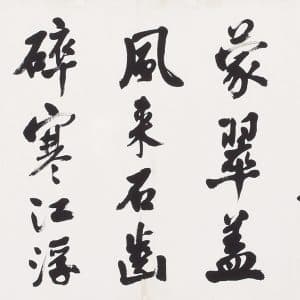 蒙翠盖
風来石齒
碎寒江浮